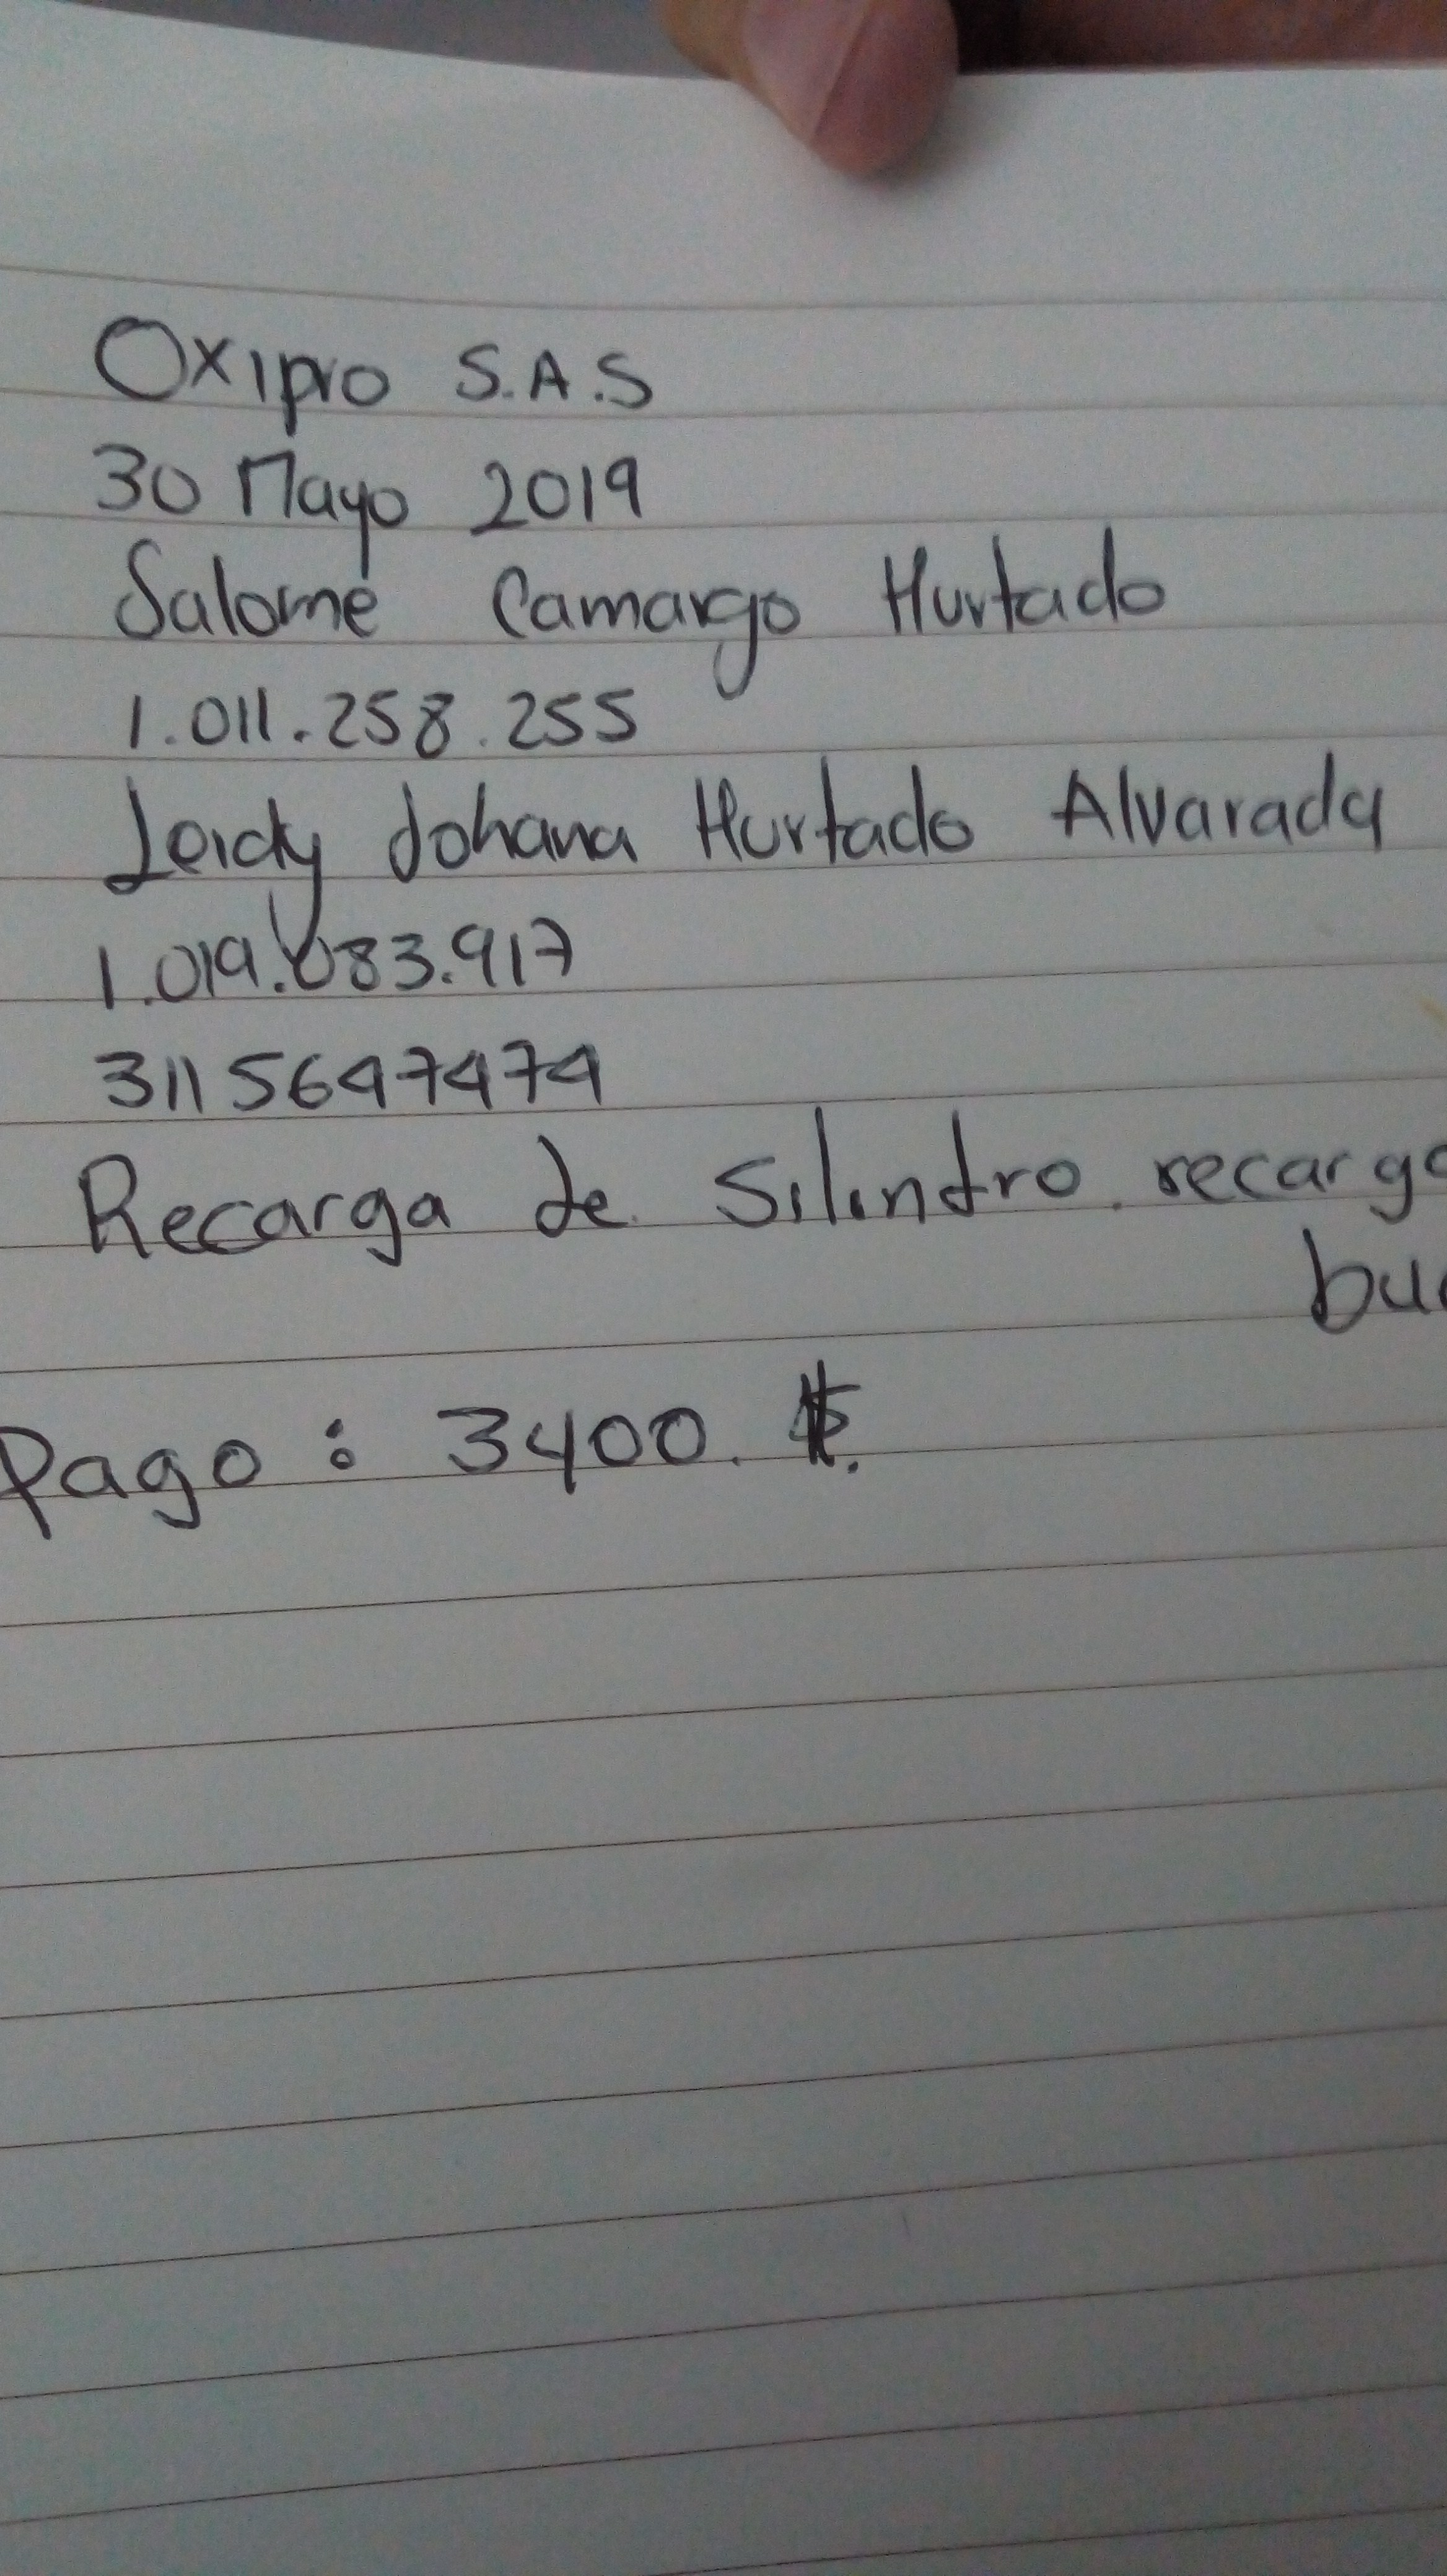 Oxipro S.A.S
30 Mayo 2019
Salomé Camargo Hurtado
1.011.258.255
Leidy Johana Hurtado Alvarado
1.019.083.917
3115647474
Recarga de Silindro. recargo
Pago : 3400. $.